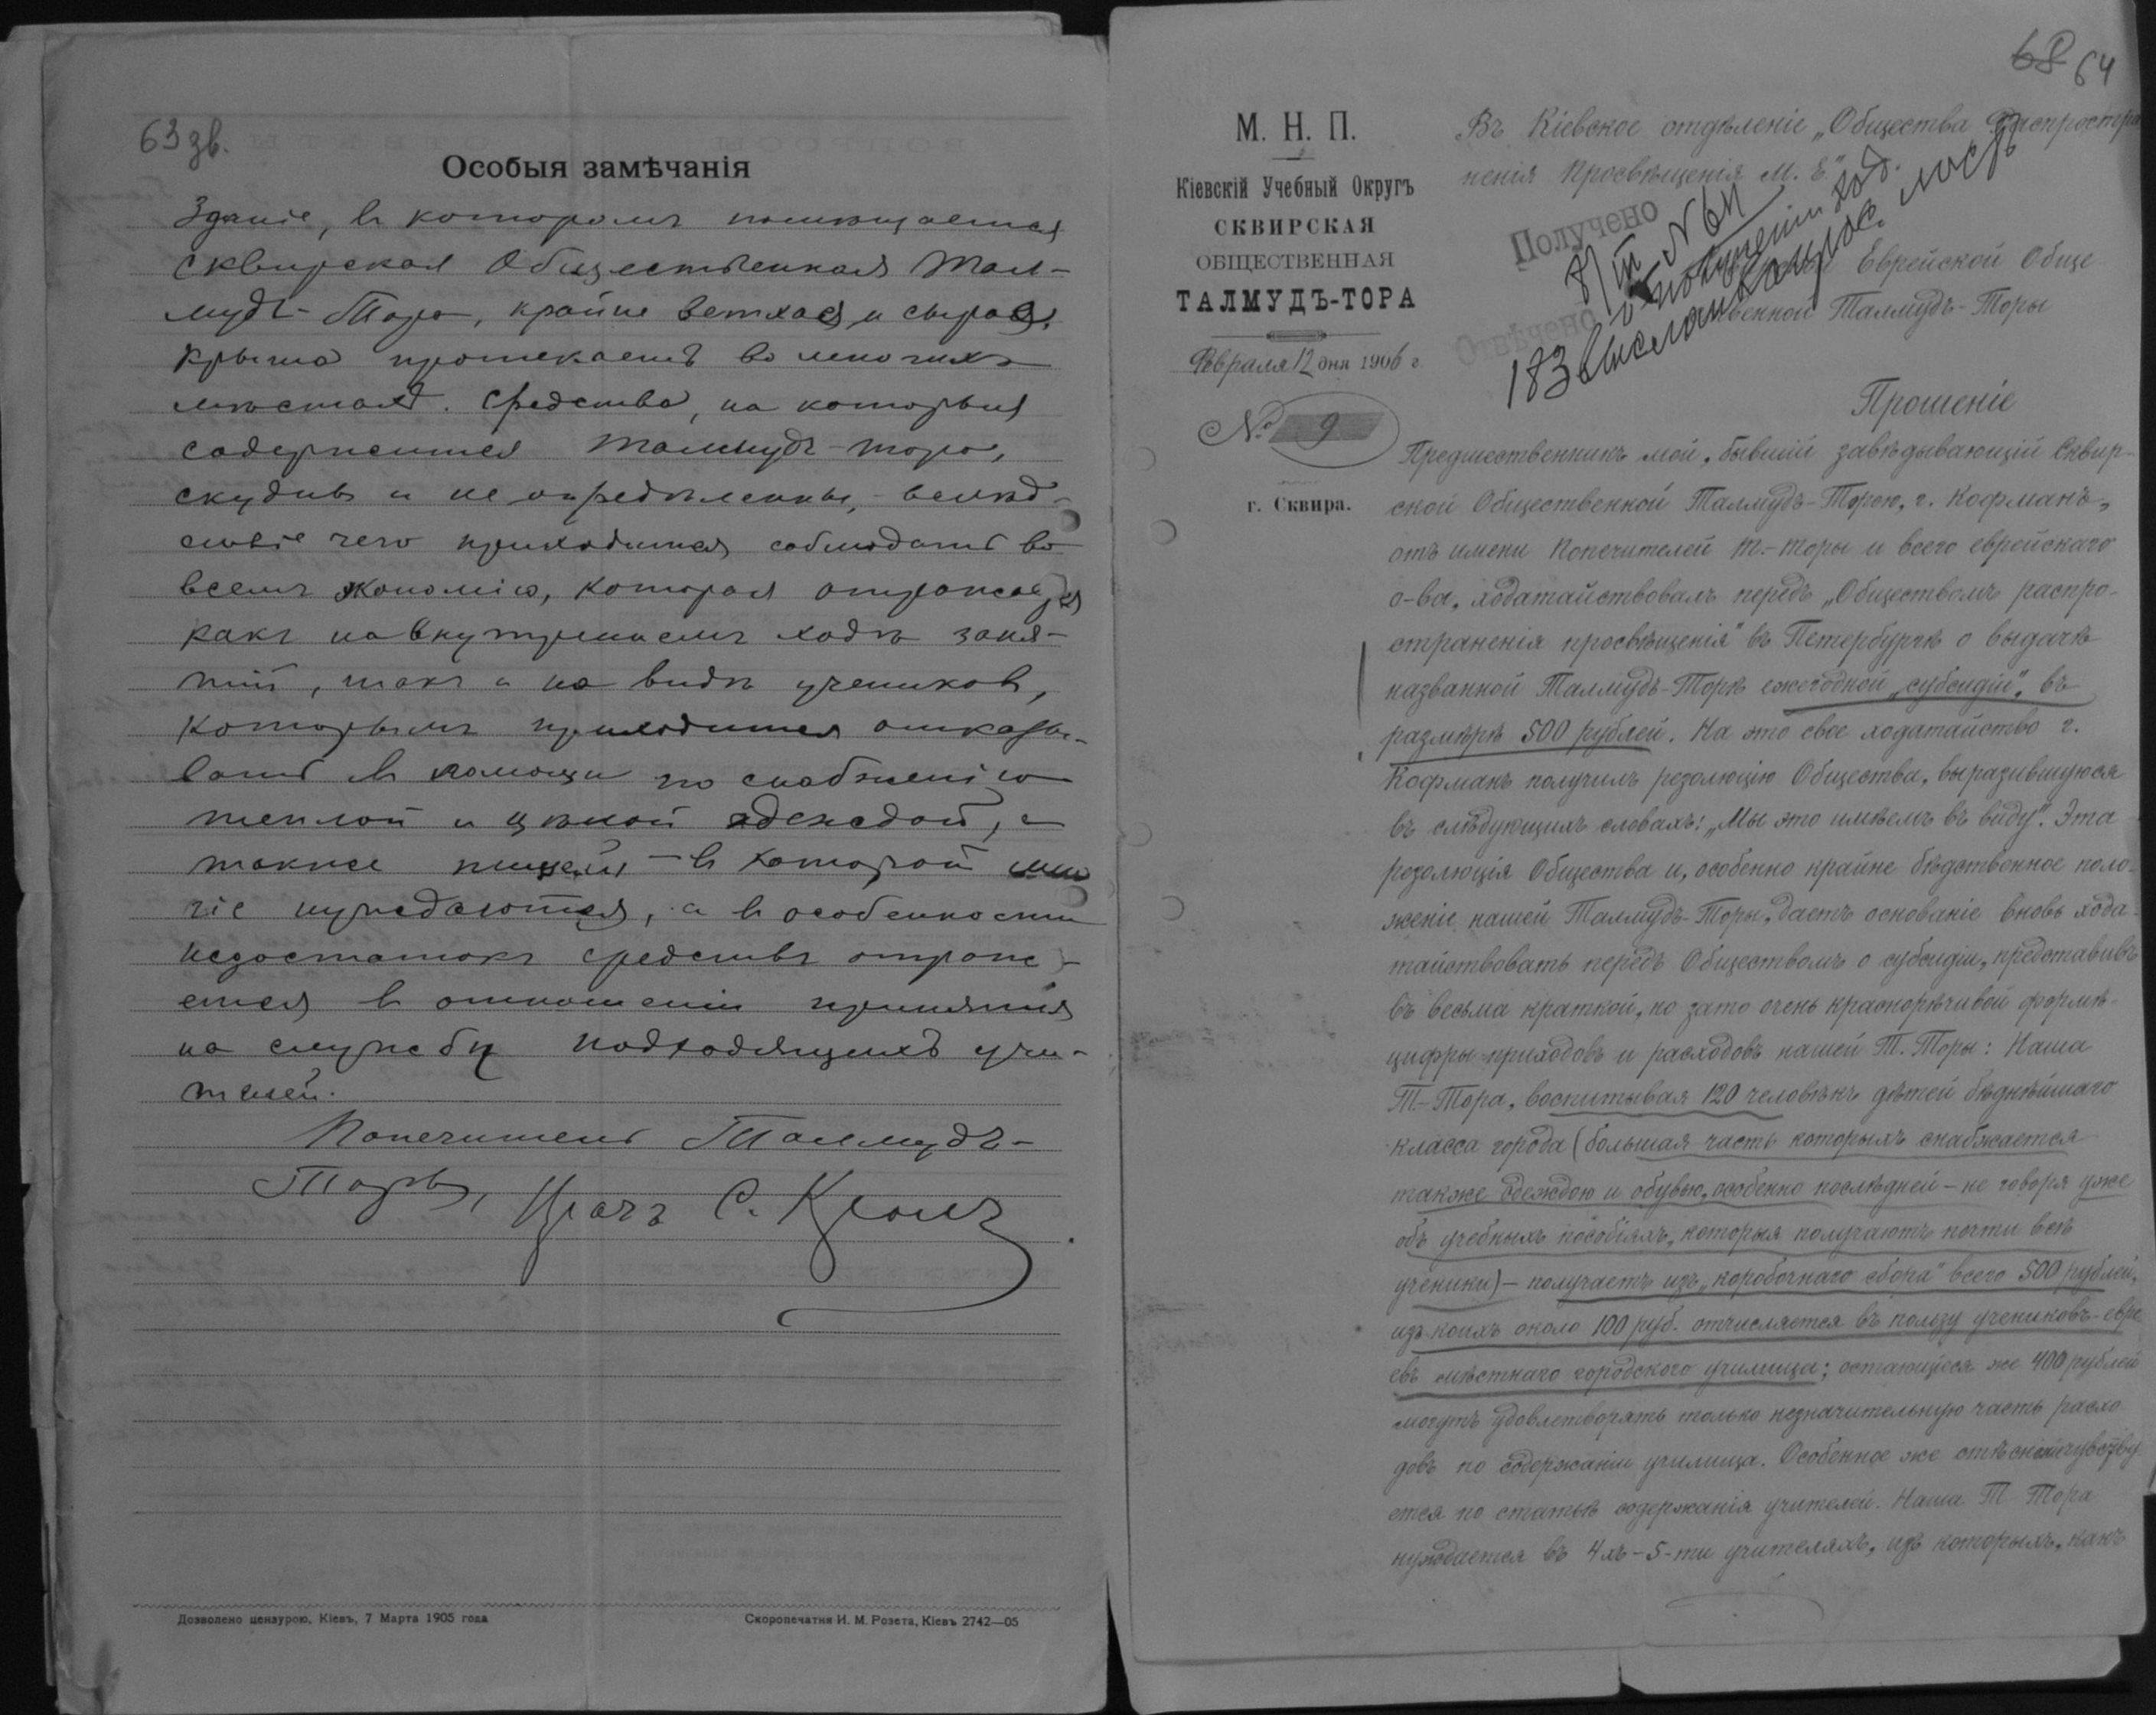 63 зв.
Особыя замѣчанія
Зданіе, въ которомъ помѣщается
Сквирская Общественная Тал-
мудъ-Тора, крайне ветхая и сырая.
Крыша протекаетъ во многихъ
мѣстахъ. Средства, на которыя
содержится Талмудъ-тора,
скудны и не опредѣленны, - вслѣд-
ствіе чего приходится соблюдать во
всемъ экономію, которая отражается
какъ на внутреннемъ ходѣ заня-
тій, такъ и на видѣ учениковъ,
которымъ приходится отказы-
вать въ помощи по снабженію
теплой и цѣлой одеждой, а
также пищей - въ которой мно
гіе нуждаются, а въ особенности
недостатокъ средствъ отража-
ется въ отношеніи принятія
на службу подходящихъ учи-
телей.
Попечитель Талмудъ-
Торы, Врачъ С.
Дозволено цензурою, Кіевъ, 7 Марта 1905 года
Скоропечатня И. М. Розета, Кіевъ 2742—05
68 64
М. Н. П.
Кіевскій Учебный Округъ
СКВИРСКАЯ
ОБЩЕСТВЕННАЯ
ТАЛМУДЪ-ТОРА
Февраля 12 дня 1906 г.
№ 9
г. Сквира.
Въ Кіевское отдѣленіе „Общества Распростра
ненія Просвѣщенія М. Е."
Получено
№ 64
Отвѣчено
183
Еврейской Обще
твенной Талмудъ-Торы
Прошеніе
Предшественникъ мой, бывшій завѣдывающій Сквир-
ской Общественной Талмудъ-Торою, г. Кофманъ,
отъ имени Попечителей Т.-Торы и всего еврейскаго
о-ва, ходатайствовалъ передъ „Обществомъ распро-
страненія просвѣщенія" въ Петербургѣ о выдачѣ
названной Талмудъ-Торѣ ежегодной „субсидіи", въ
размѣрѣ 500 рублей. На это свое ходатайство г.
Кофманъ получилъ резолюцію Общества, выразившуюся
въ слѣдующихъ словахъ: „Мы это имѣемъ въ виду". Эта
резолюція Общества и, особенно крайне бѣдственное поло-
женіе нашей Талмудъ-Торы, даетъ основаніе вновь хода-
тайствовать передъ Обществомъ о субсидіи, представивъ
въ весьма краткой, но зато очень краснорѣчивой формѣ-
цифры приходовъ и расходовъ нашей Т. Торы: Наша
Т.-Тора, воспитывая 120 человѣкъ дѣтей бѣднѣйшаго
класса города (большая часть которыхъ снабжается
также одеждою и обувью, особенно послѣдней - не говоря уже
объ учебныхъ пособіяхъ, которыя получаютъ почти всѣ
ученики) - получаетъ изъ „коробочнаго сбора" всего 500 рублей,
изъ коихъ около 100 руб. отчисляется въ пользу учениковъ-евре
евъ мѣстнаго городского училища; остающіеся же 400 рублей
могутъ удовлетворять только незначительную часть расхо
довъ по содержанію училища. Особенное же стѣсненіе чувству
ется по статьѣ содержанія учителей. Наша Т-Тора
нуждается въ 4хъ-5-ти учителяхъ, изъ которыхъ, какъ